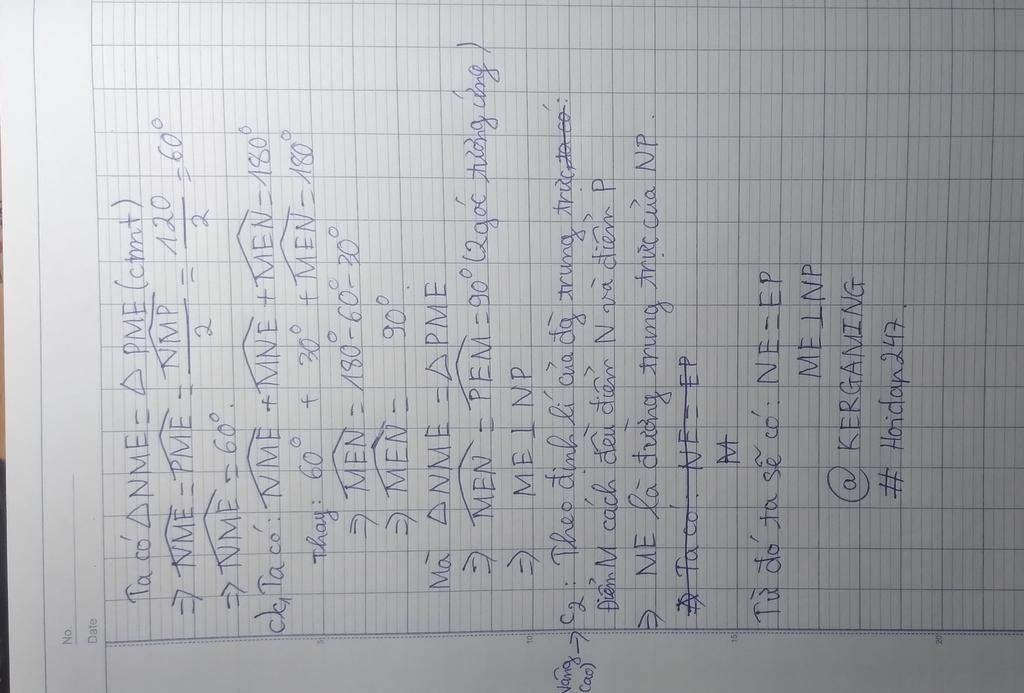 No.
Date
Ta có △NME = △PME (cmt)
⇒ NME = PME = NMP/2 = 120/2 = 60°
⇒ NME = 60°.
c) c₁ Ta có: NME + MNE + MEN = 180°
Thay: 60° + 30° + MEN = 180°
⇒ MEN = 180° - 60° - 30°
⇒ MEN = 90°
Mà △NME = △PME
⇒ MEN = PEM = 90° (2 góc tương ứng)
⇒ ME ⊥ NP
(Nâng cao) → c₂: Theo định lí của đg trung trực, ta có:
Điểm M cách đều điểm N và điểm P
⇒ ME là đường trung trực của NP.
Ta có: NE = EP
Từ đó ta sẽ có: NE = EP
ME ⊥ NP
@ KERGAMING
# Hoidap247
5
10
15
20